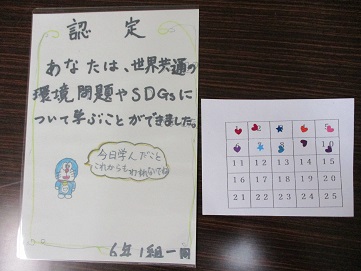 認定
あなたは、世界共通の
環境問題やSDGsに
ついて学ぶことができました。
今日学んだこと
これからもわすれないでね
6年1組一同
10
11 12 13 14 15
16 17 18 19 20
21 22 23 24 25